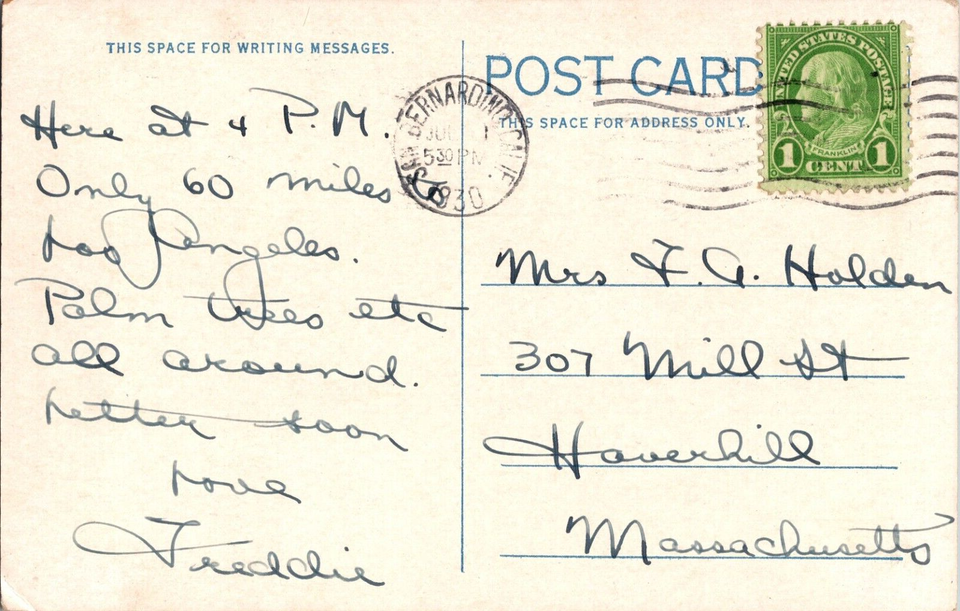 THIS SPACE FOR WRITING MESSAGES.
Here at 4 P.M.
Only 60 miles to
Los Angeles.
Palm trees etc
all around.
Letter soon
Love
Freddie
POST CARD
THIS SPACE FOR ADDRESS ONLY.
SAN BERNARDINO, CALIF.
JUL
530 PM
1930
UNITED STATES POSTAGE
FRANKLIN
1 CENT 1
Mrs F. A. Holden
307 Mill St
Haverhill
Massachusetts